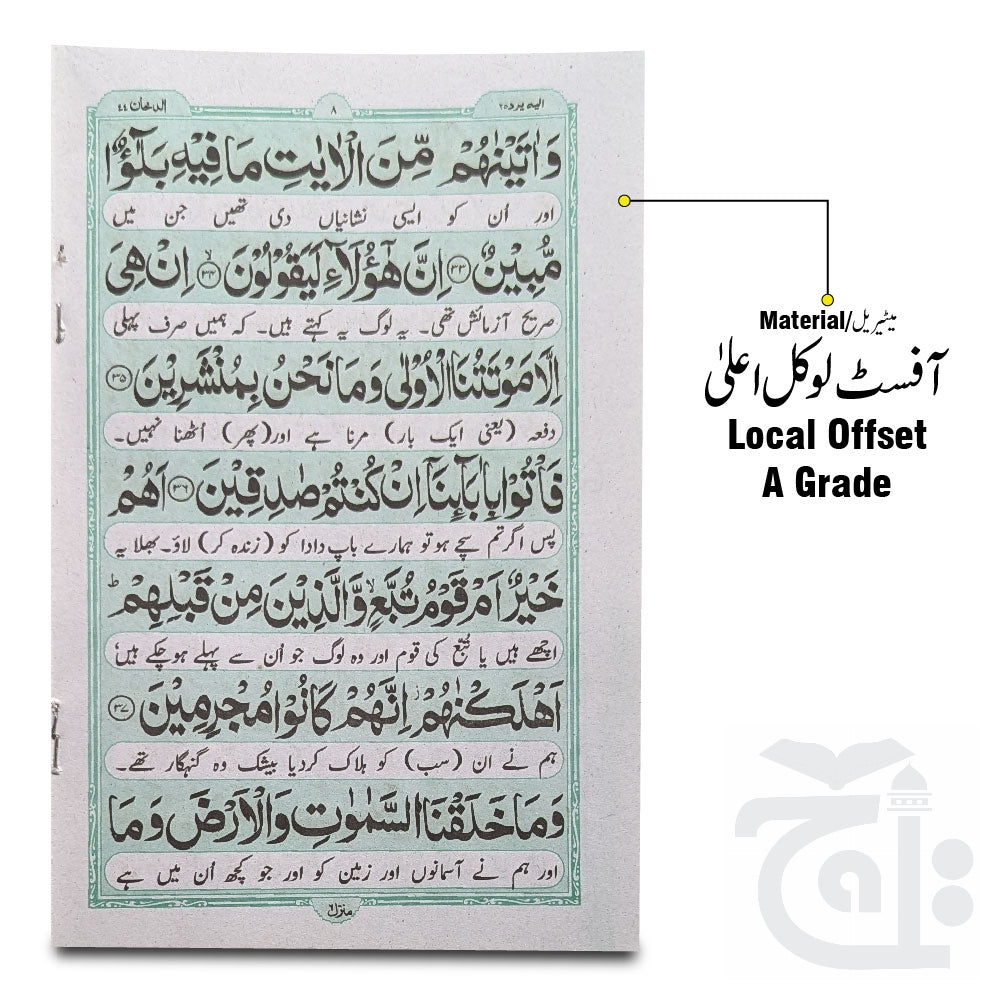 الیه یرد ۲۵
۸
الدخان ۴۴
وَاٰتَيْنٰهُمْ مِّنَ الْاٰيٰتِ مَا فِيْهِ بَلٰٓؤٌا
اور اُن کو ایسی نشانیاں دی تھیں جن میں
مُّبِيْنٌ ﴿۳۳﴾ اِنَّ هٰٓؤُلَآءِ لَيَقُوْلُوْنَ ﴿۳۴﴾ۙ اِنْ هِيَ
صریح آزمائش تھی۔ یہ لوگ یہ کہتے ہیں۔ کہ ہمیں صرف پہلی
اِلَّا مَوْتَتُنَا الْاُوْلٰى وَمَا نَحْنُ بِمُنْشَرِيْنَ ﴿۳۵﴾
دفعہ (یعنی ایک بار) مرنا ہے اور(پھر) اُٹھنا نہیں۔
فَاْتُوْا بِاٰبَآئِنَآ اِنْ كُنْتُمْ صٰدِقِيْنَ ﴿۳۶﴾ اَهُمْ
پس اگر تم سچے ہو تو ہمارے باپ دادا کو (زندہ کر) لاؤ۔ بھلا یہ
خَيْرٌ اَمْ قَوْمُ تُبَّعٍۙ وَّالَّذِيْنَ مِنْ قَبْلِهِمْؕ
اچھے ہیں یا تُبّع کی قوم اور وہ لوگ جو اُن سے پہلے ہو چکے ہیں
اَهْلَكْنٰهُمْؗ اِنَّهُمْ كَانُوْا مُجْرِمِيْنَ ﴿۳۷﴾
ہم نے ان (سب) کو ہلاک کردیا بیشک وہ گنہگار تھے۔
وَمَا خَلَقْنَا السَّمٰوٰتِ وَالْاَرْضَ وَمَا
اور ہم نے آسمانوں اور زمین کو اور جو کچھ اُن میں ہے
منزل ٦
Material/میٹیریل
آفسٹ لوکل اعلیٰ
Local Offset
A Grade